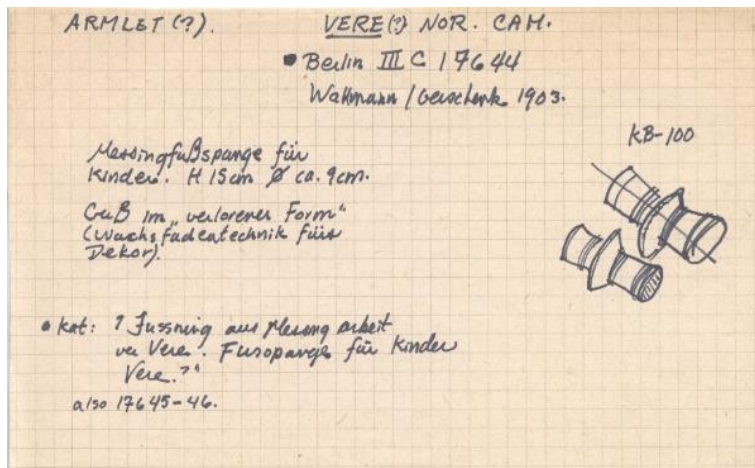 ARMLET (?). VERE (?) NOR. CAM.
• Berlin III C 17644
Wallmann / Geschenk 1903.
KB-100
Messingfußspange für
Kinder. H 15cm Ø ca. 9cm.
Guß im „verlorener Form“
(Wachsfadentechnik fürs
Dekor).
• Kat: ? Fussring aus Messing arbeit
der Vere. Fusspange für Kinder
Vere.?“
also 17645-46.